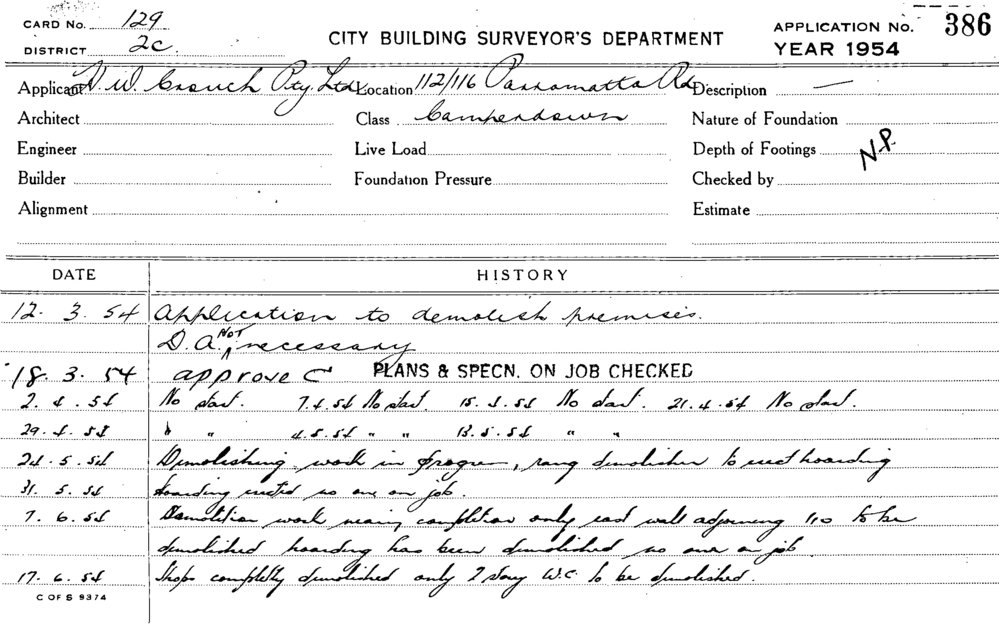 CARD No. 129
DISTRICT 2c
CITY BUILDING SURVEYOR'S DEPARTMENT
APPLICATION No. 386
YEAR 1954
Applicant W. Crouch Pty. Ltd. Location 112/116 Parramatta Rd Description —
Architect Class Camperdown Nature of Foundation
Engineer Live Load Depth of Footings N.P.
Builder Foundation Pressure Checked by
Alignment Estimate
DATE HISTORY
12. 3. 54 Application to demolish premises.
D.A. NOT necessary
18. 3. 54 approve C PLANS & SPECN. ON JOB CHECKED
2. 4. 54 No start. 7.4.54 No start. 15.4.54 No start. 21.4.54 No start.
29. 4. 54 " " 4.5.54 " " 13.5.54 " "
24. 5. 54 Demolishing work in progress, rang demolisher to erect hoarding
31. 5. 54 hoarding erected no one on job.
7. 6. 54 Demolition work nearing completion only east wall adjoining 110 to be
demolished hoarding has been demolished no one on job
17. 6. 54 Shops completly demolished only 2 story W.C. to be demolished.
C OF S 9374